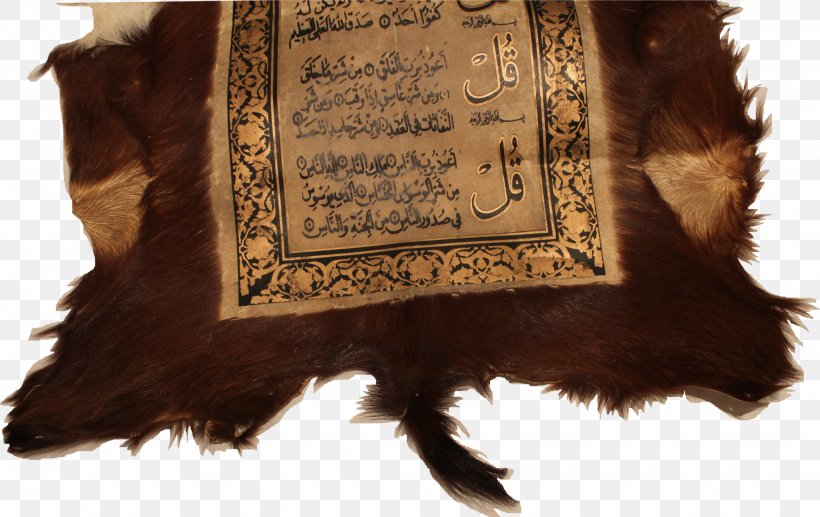 ولم يكن له
كفوا احد صدق الله العلي العظيم
قل
بسم الله الرحمن الرحيم
اعوذ برب الفلق من شر ما خلق
ومن شر غاسق اذا وقب ومن شر
النفاثات في العقد ومن شر حاسد اذا حسد
قل
بسم الله الرحمن الرحيم
اعوذ برب الناس ملك الناس اله الناس
من شر الوسواس الخناس الذي يوسوس
في صدور الناس من الجنة والناس